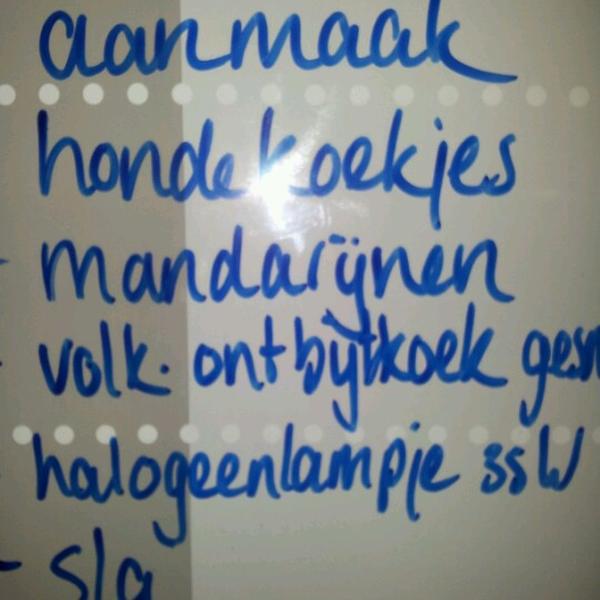 aanmaak
hondekoekjes
- mandarijnen
- volk. ontbijtkoek gesn
- halogeenlampje 35W
- sla